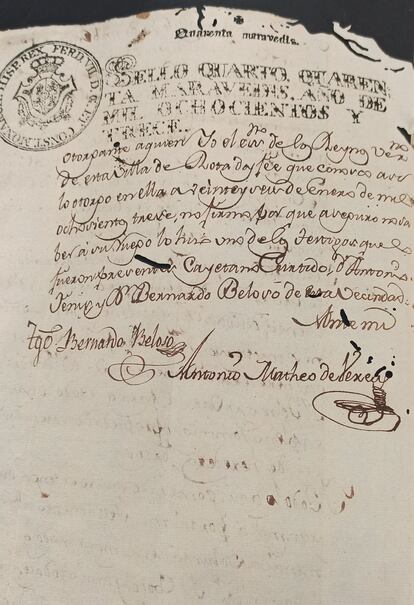 Quarenta maravedis.
FERD VII D G ET CONST MONARCH HISP REX
SELLO QUARTO, QUAREN
TA MARAVEDIS, AÑO DE
MIL OCHOCIENTOS Y
TRECE.
Otorgante aquien Yo el esno de los Reynos vezno
de esta Villa de Rota doy fee que conosco asi
lo otorgo en ella a veinte y seis de Enero de mil
ochocientos trece, no firmo por que aseguro no sa
ber á su ruego lo hizo uno de los testigos que lo
fueron presentes Cayetano Curtido, Dn Antonio
y Dn Bernardo Beloso de esta Vecindad
Ante mi
Tgo Bernardo Beloso
Antonio Matheo de Verea